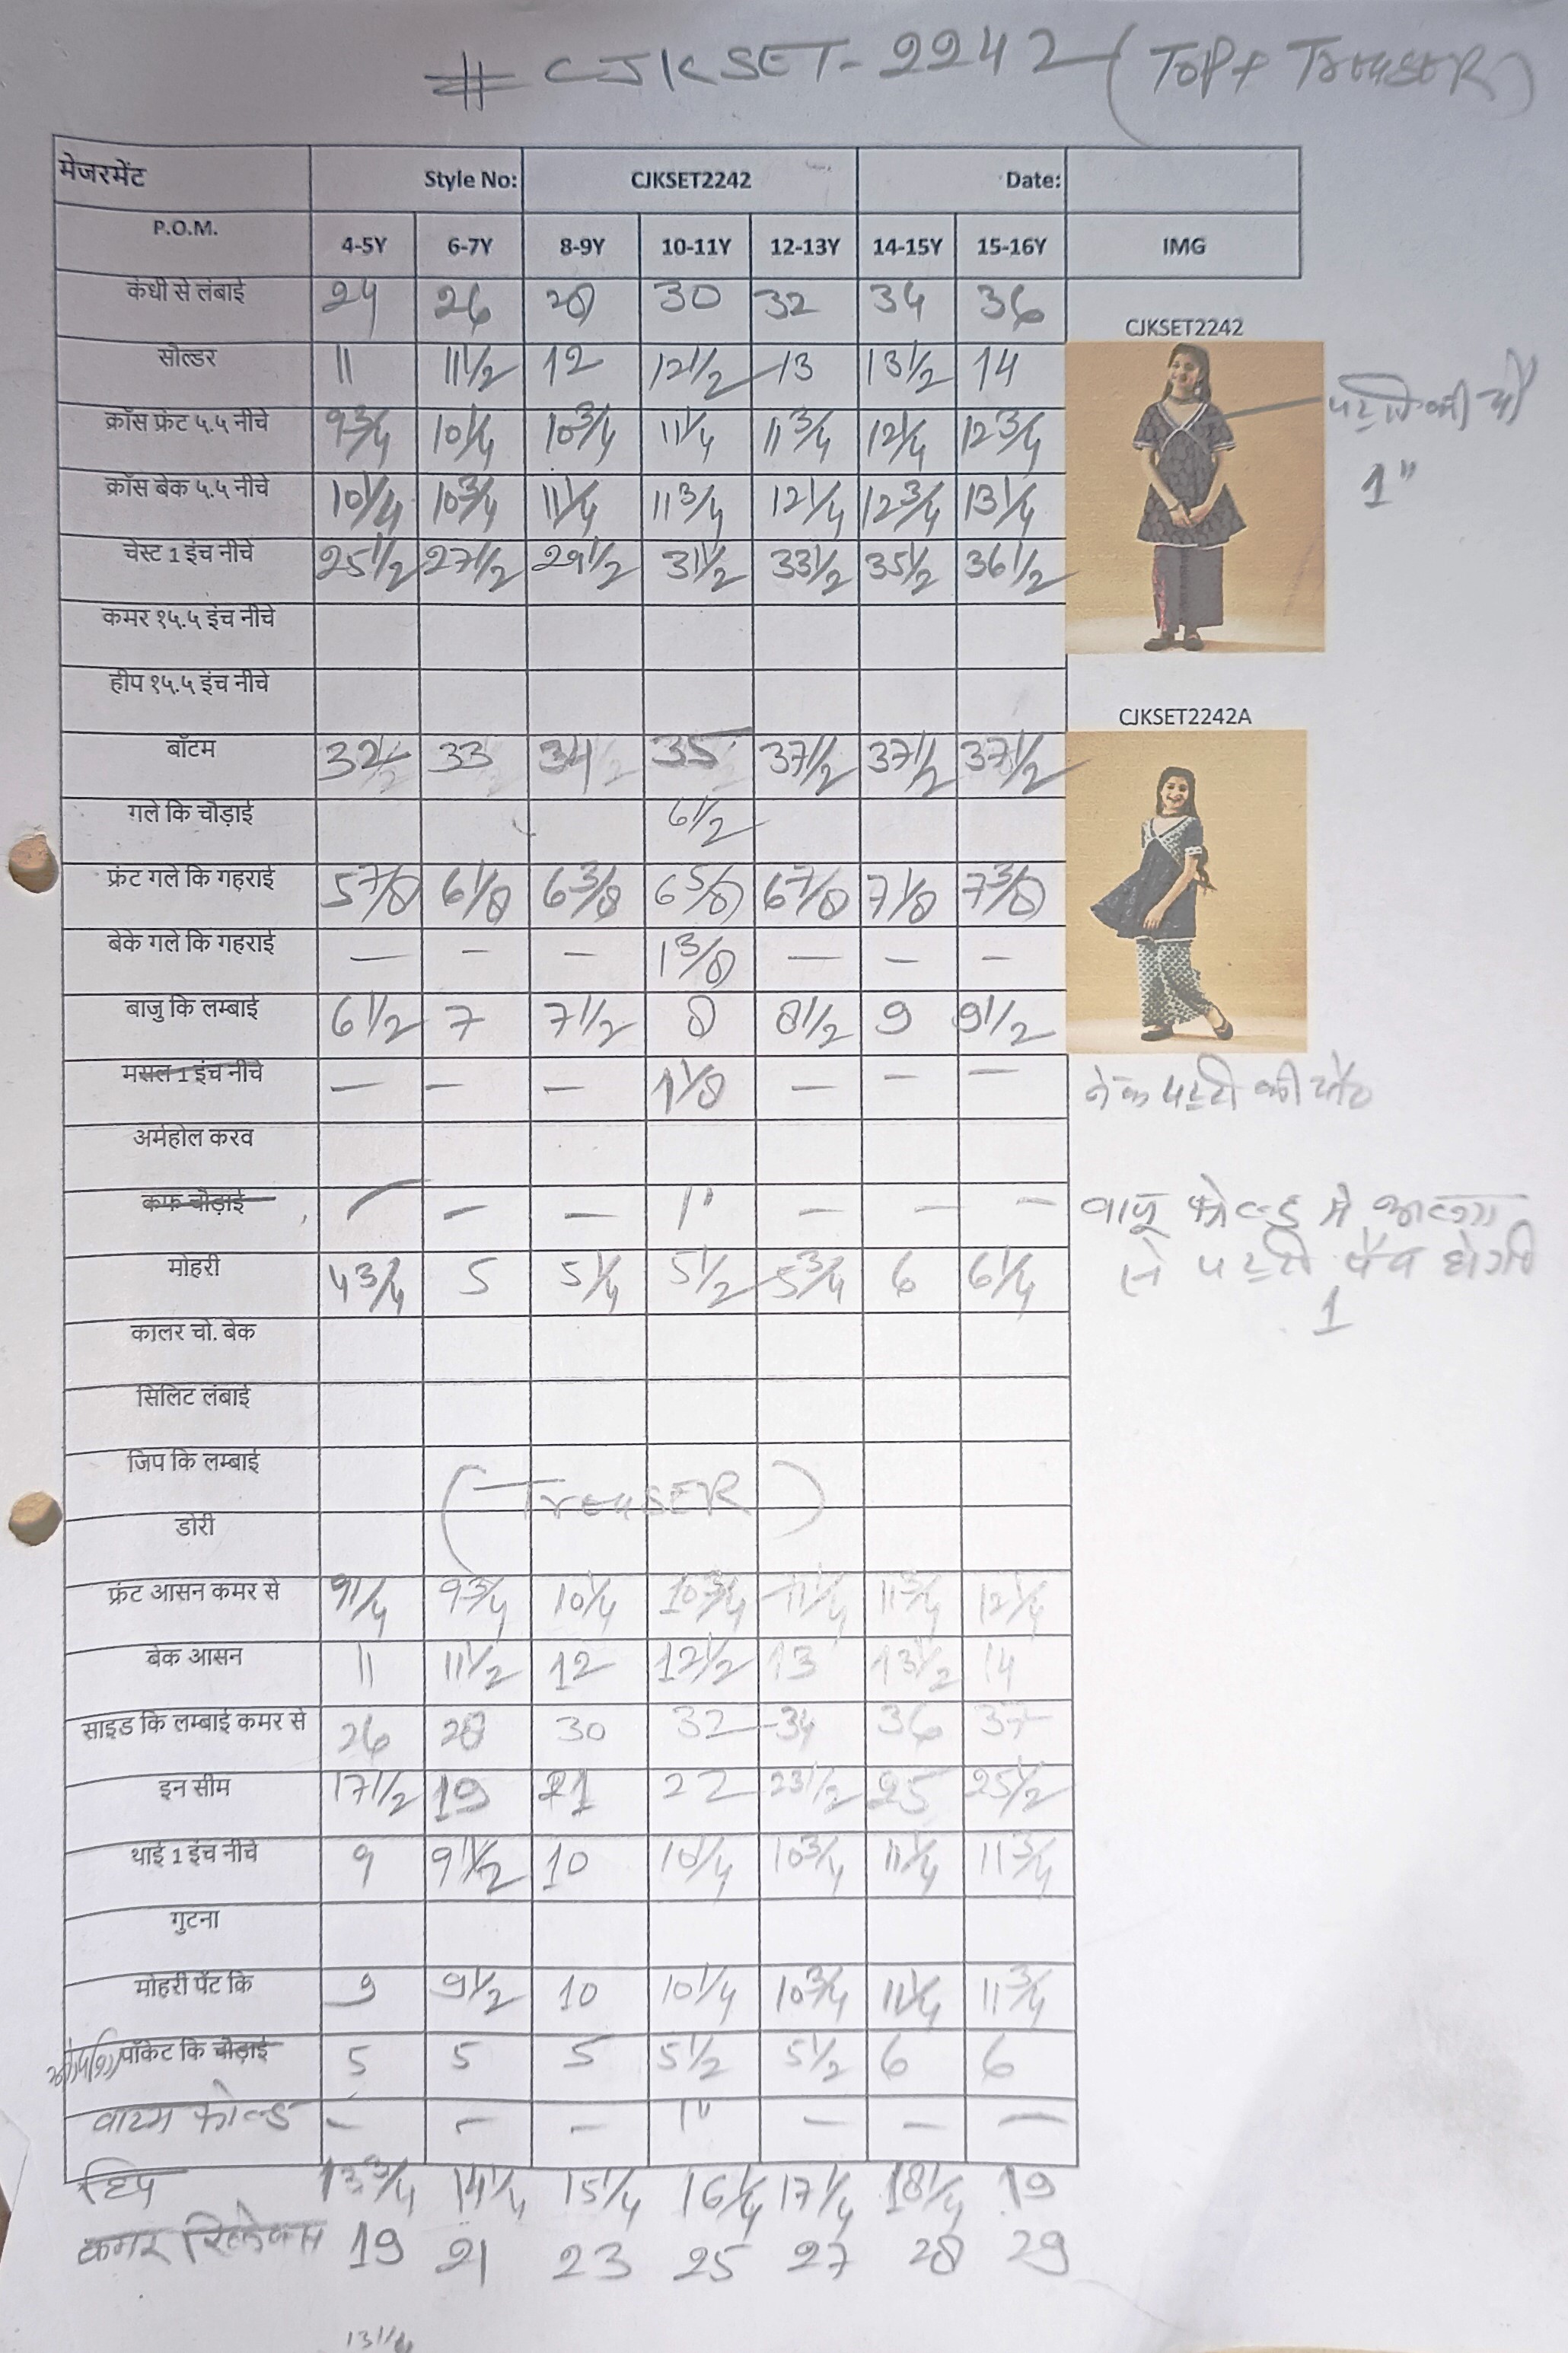 # CJKSET-2242 (TOP+ TROUSER)
मेजरमेंट Style No: CJKSET2242 Date:
P.O.M. 4-5Y 6-7Y 8-9Y 10-11Y 12-13Y 14-15Y 15-16Y IMG
कंधी से लंबाई 24 26 28 30 32 34 36
CJKSET2242
सोल्डर 11 11 1/2 12 12 1/2 13 13 1/2 14
क्रॉस फ्रंट ५.५ नीचे 9 3/4 10 1/4 10 3/4 11 1/4 11 3/4 12 1/4 12 3/4
पट्टी की चौ
1"
क्रॉस बेक ५.५ नीचे 10 1/4 10 3/4 11 1/4 11 3/4 12 1/4 12 3/4 13 1/4
चेस्ट 1 इंच नीचे 25 1/2 27 1/2 29 1/2 31 1/2 33 1/2 35 1/2 36 1/2
कमर १५.५ इंच नीचे
हीप १५.५ इंच नीचे
CJKSET2242A
बॉटम 32 1/2 33 34 35 37 1/2 37 1/2 37 1/2
गले कि चौड़ाई 6 1/2
फ्रंट गले कि गहराई 5 7/8 6 1/8 6 3/8 6 5/8 6 7/8 7 1/8 7 3/8
बेके गले कि गहराई — — — 1 3/8 — — —
बाजु कि लम्बाई 6 1/2 7 7 1/2 8 8 1/2 9 9 1/2
मसल 1 इंच नीचे — — — 1 1/8 — — —
नेक पट्टी की चौ०
अर्महोल करव
कफ चौड़ाई — — — 1" — — —
बाजू फोल्ड मे अलग
से पट्टी पैच होगी
1
मोहरी 4 3/4 5 5 1/4 5 1/2 5 3/4 6 6 1/4
कालर चो. बेक
सिलिट लंबाई
जिप कि लम्बाई
(TROUSER)
डोरी
फ्रंट आसन कमर से 9 1/4 9 3/4 10 1/4 10 3/4 11 1/4 11 3/4 12 1/4
बेक आसन 11 11 1/2 12 12 1/2 13 13 1/2 14
साइड कि लम्बाई कमर से 26 28 30 32 34 36 37
इन सीम 17 1/2 19 21 22 23 1/2 25 25 1/2
थाई 1 इंच नीचे 9 9 1/2 10 10 1/4 10 3/4 11 1/4 11 3/4
गुटना
मोहरी पेंट कि 9 9 1/2 10 10 1/4 10 3/4 11 1/4 11 3/4
पॉकेट कि चौड़ाई 5 5 5 5 1/2 5 1/2 6 6
वाटम फोल्ड — — — 1" — — —
हिप 13 3/4 14 1/4 15 1/4 16 1/4 17 1/4 18 1/4 19
कमर रिलेक्स 19 21 23 25 27 28 29
13 1/4